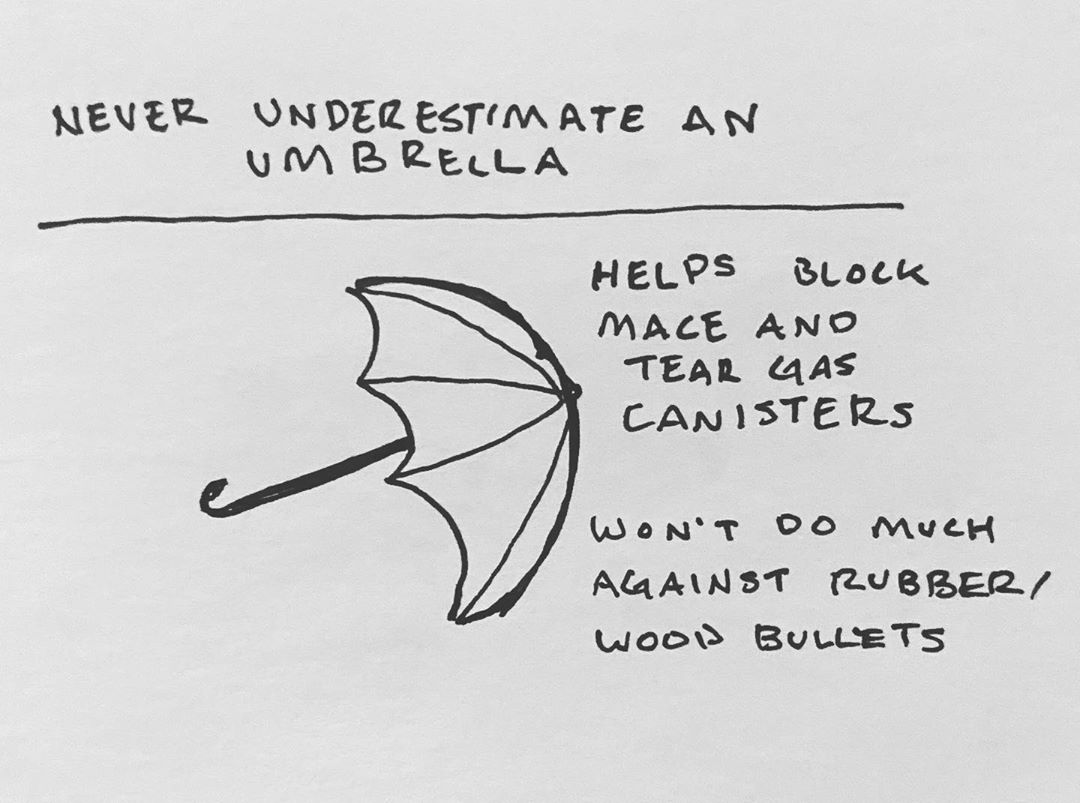 NEVER UNDERESTIMATE AN
UMBRELLA
HELPS BLOCK
MACE AND
TEAR GAS
CANISTERS
WON'T DO MUCH
AGAINST RUBBER/
WOOD BULLETS